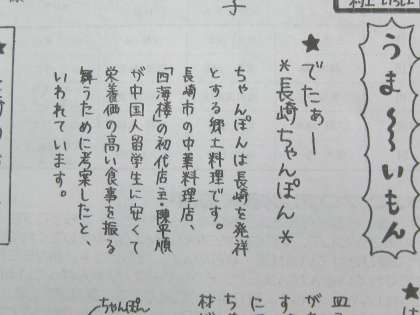 うま〜〜いもん
★でたぁー
＊長崎ちゃんぽん＊
ちゃんぽんは長崎を発祥
とする郷土料理です。
長崎市の中華料理店、
「四海樓」の初代店主・陳平順
が中国人留学生に安くて
栄養価の高い食事を振る
舞うために考案したと、
いわれています。
ちゃんぽん